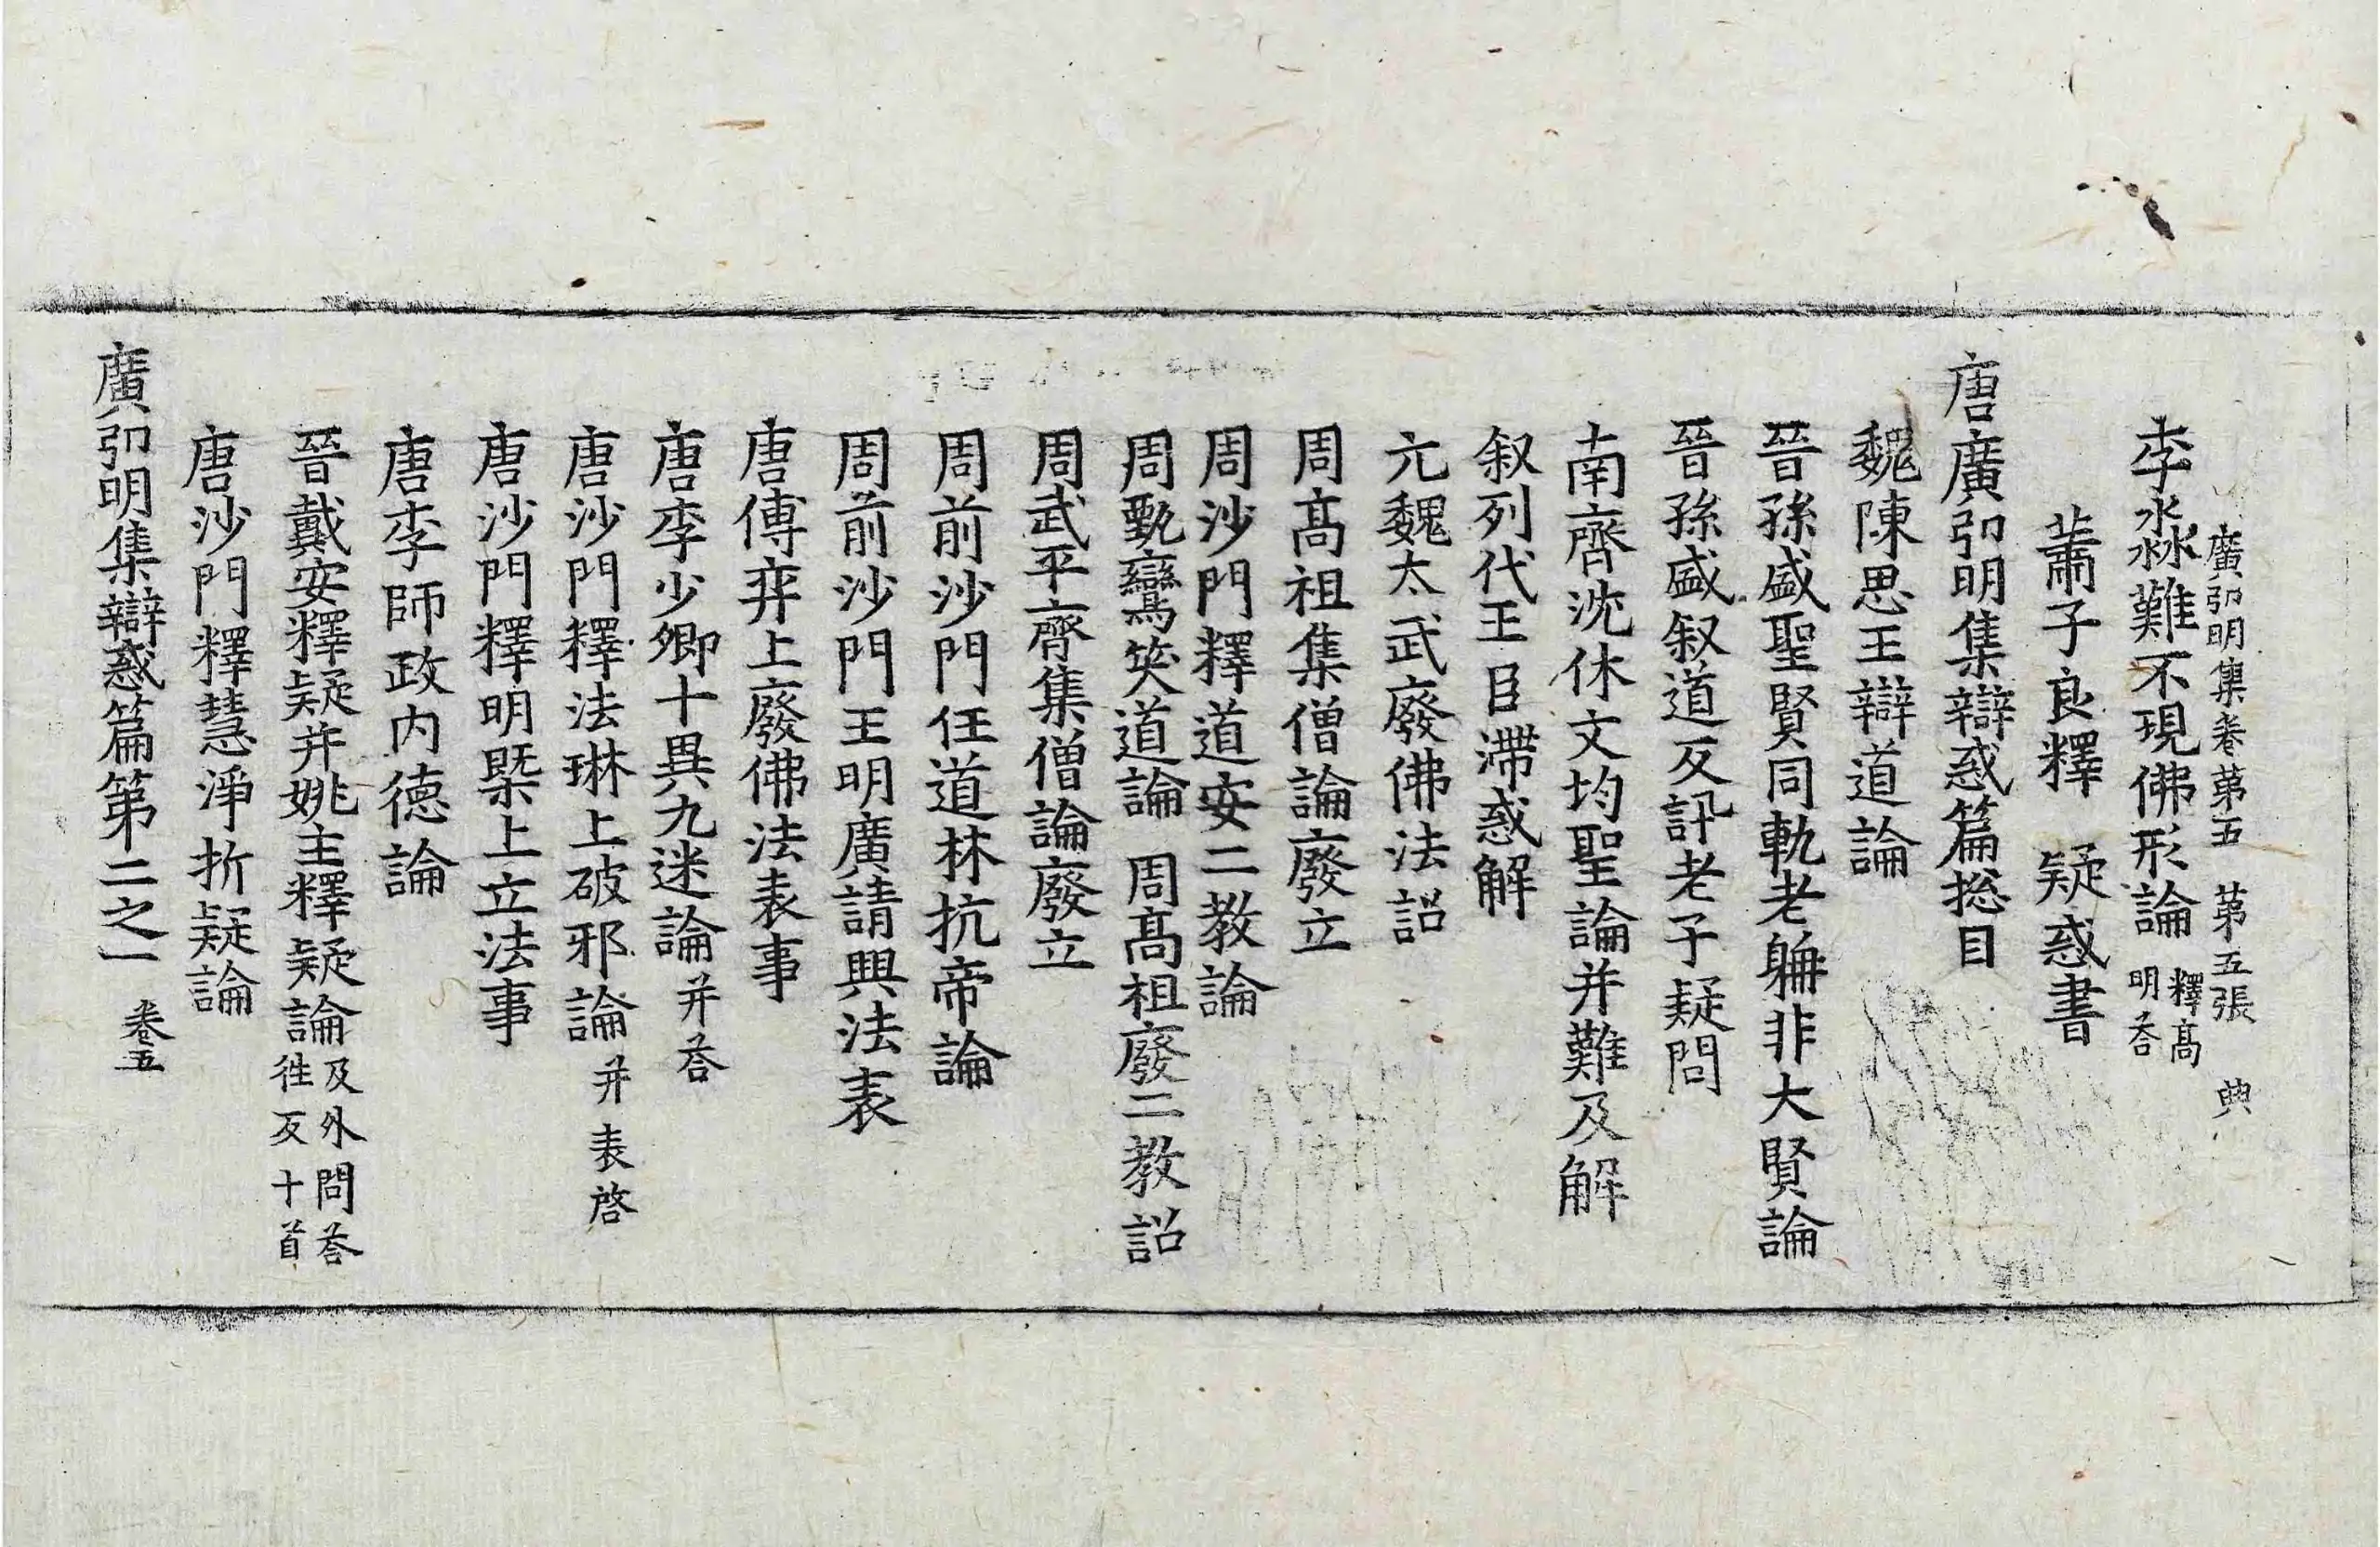 廣弘明集卷第五 第五張 典
李淼難不現佛形論 釋高明荅
蕭子良釋 疑惑書
唐廣弘明集辯惑篇捴目
魏陳思王辯道論
晉孫盛聖賢同軌老聃非大賢論
晉孫盛叙道反訊老子疑問
南齊沈休文均聖論并難及解
叙列代王臣滯惑解
元魏太武廢佛法詔
周髙祖集僧論廢立
周沙門釋道安二教論
周甄鸞笑道論 周髙祖廢二教詔
周武平齊集僧論廢立
周前沙門任道林抗帝論
周前沙門王明廣請興法表
唐傅弈上廢佛法表事
唐李少卿十異九迷論 并荅
唐沙門釋法琳上破邪論 并表啓
唐沙門釋明槩上立法事
唐李師政内德論
晉戴安釋疑并姚主釋疑論 及外問荅往反十首
唐沙門釋慧淨折疑論
廣弘明集辯惑篇第二之一 卷五